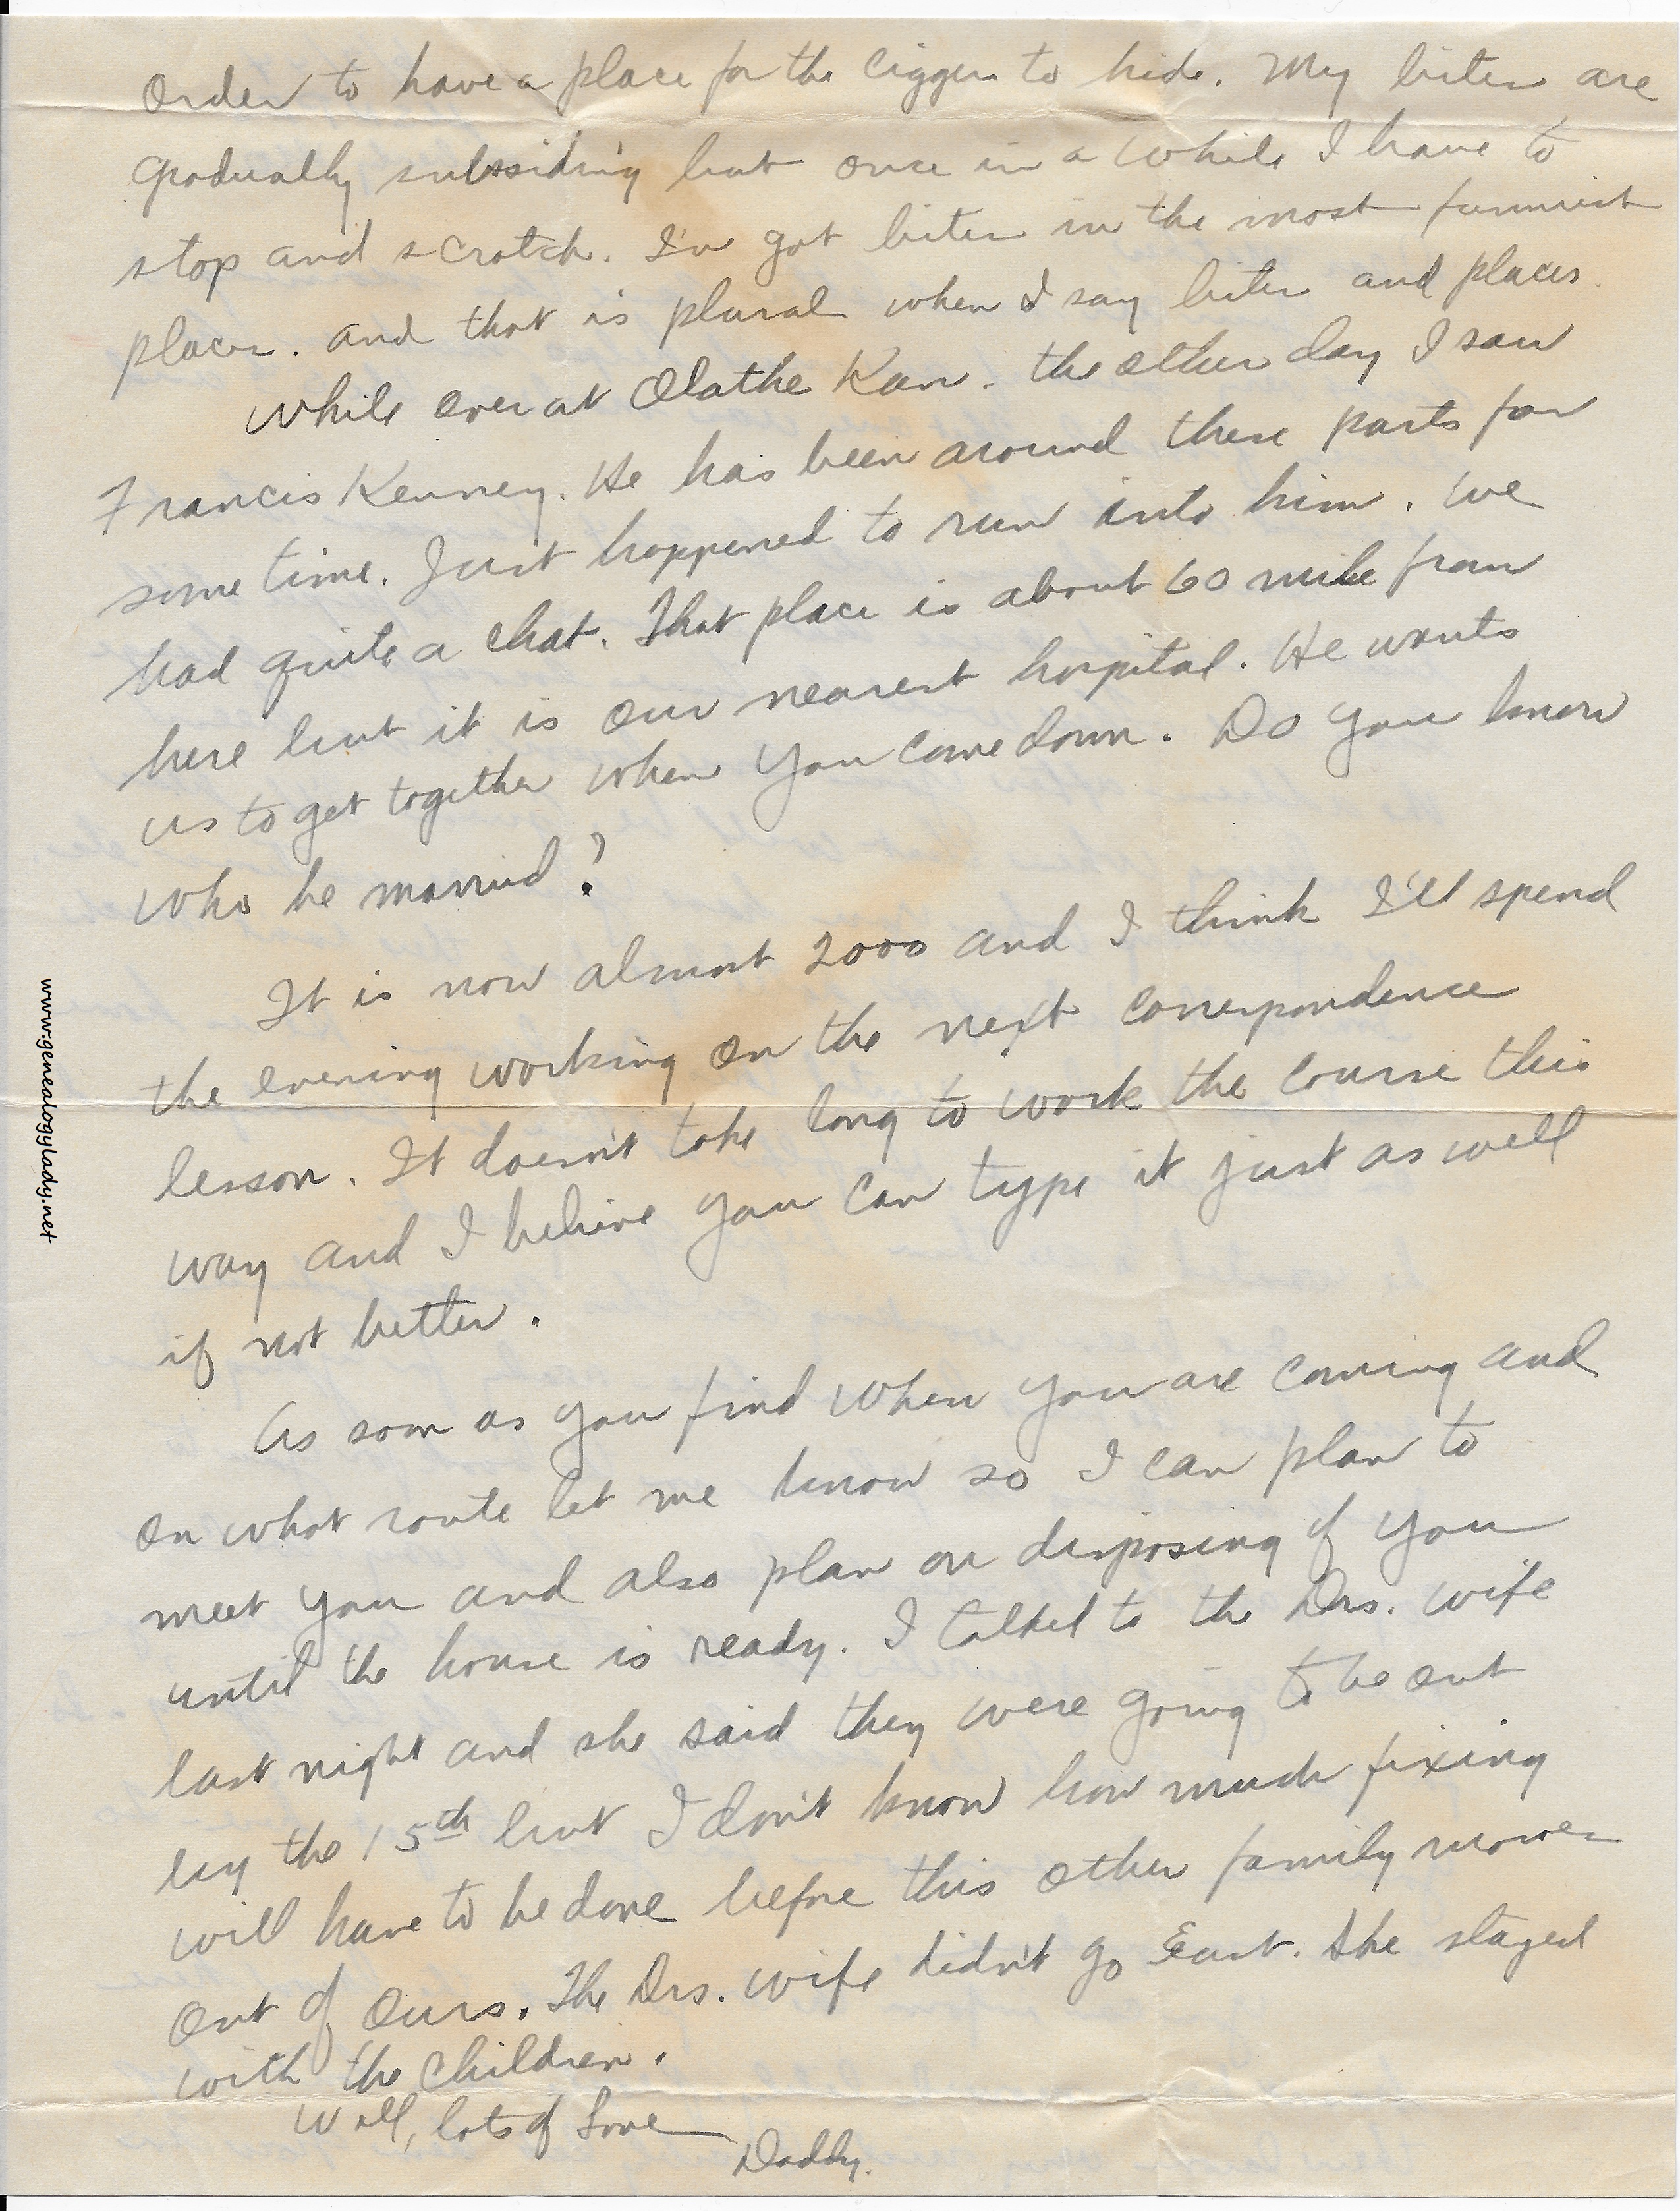 order to have a place for the ciggers to hide. My bites are
gradually subssiding but once in a while I have to
stop and scratch. I've got bites in the most funniest
places. and that is plural when I say bites and places.
While over at Olathe Kan. the other day I saw
Francis Kenney. He has been around these parts for
some time. Just happened to run into him. We
had quite a chat. That place is about 60 mile from
here but it is our nearest hospital. He wants
us to get together when you come down. Do you know
who he married?
It is now almost 2000 and I think I'll spend
the evening working on the next correspondence
lesson. It doesn't take long to work the course this
way and I believe you can type it just as well
if not better.
As soon as you find when you are coming and
on what route let me know so I can plan to
meet you and also plan on disposing of you
until the house is ready. I talked to the Drs. wife
last night and she said they were going to be out
by the 15th but I don't know how much fixing
will have to be done before this other family moves
out of ours. The Drs. wife didn't go East. She stayed
with the children.
Well, lots of Love
Daddy.
www.genealogylady.net